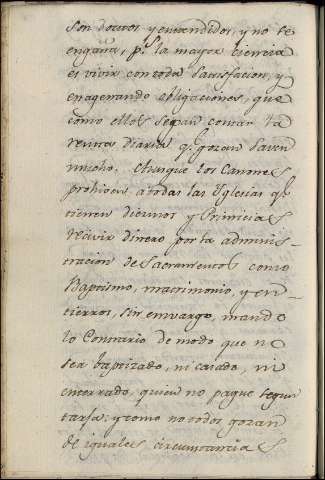 son doctos y entendidos, y no se
engaña, p.ʳ la mayor ciencia
es vivir con toda satisfacion, y
enagenando obligaciones, que
como ellos sepan contar la
renta diaria q.ᵉ gozan saven
mucho. Aunque los Canones
prohiven à todas las Yglesias q.ᵉ
tienen diezmos y Primicias
recivir dinero por la adminis-
tracion de Sacramentos como
Baptismo, matrimonio, y en-
tierros, sin envargo, mando
lo Contrario de modo que no
sea baptizado, ni casado, ni
enterrado, quien no pague segun
tarifa: y como no todos gozan
de iguales circunstancias